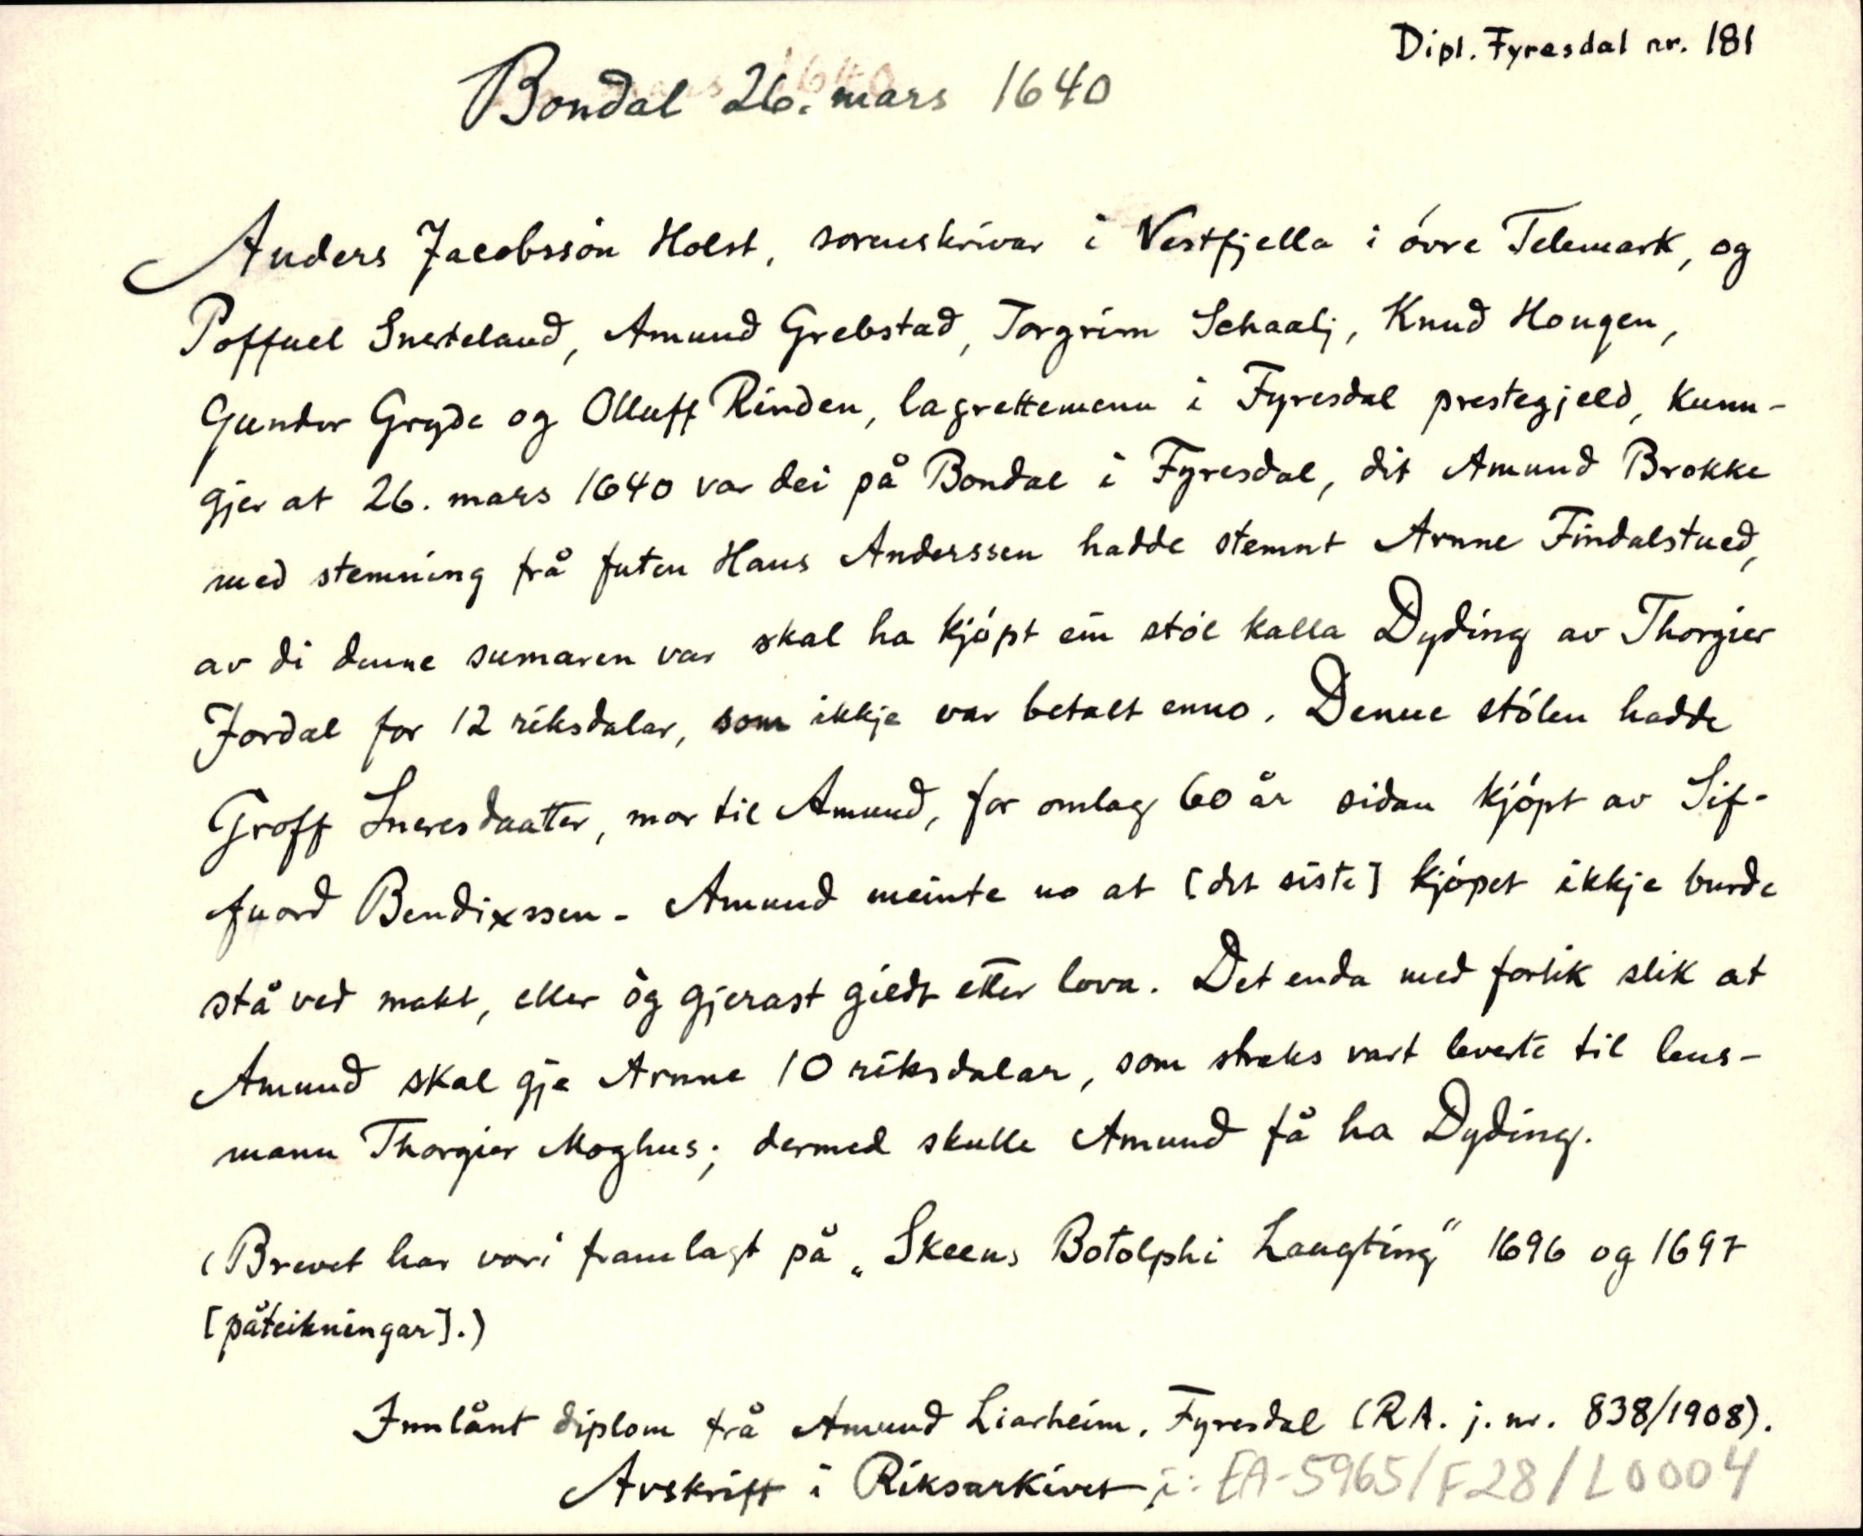 Dipl. Fyresdal nr. 181
Bondal 26. mars 1640
Anders Jacobssøn Holst, sorenskrivar i Vestfjella i óvre Telemark, og
Poffuel Snerteland, Amund Grebstad, Torgrim Schaalj, Knud Hougen,
Gundor Gryde og Olluff Rinden, lagrettemenn i Fyresdal prestegjeld, kunn-
gjer at 26. mars 1640 var dei på Bondal i Fyresdal, dit Amund Brokke
med stemning frå futen Hans Anderssen hadde stemnt Arnne Findalstued,
av di denne sumaren var skal ha kjópt ein stól kalla Dyding av Thorgier
Jordal for 12 riksdalar, som ikkje var betalt enno. Denne stólen hadde
Groff Sneresdaatter, mor til Amund, for omlag 60 år sidan kjópt av Sif-
fuord Bendixssen - Amund meinte no at [det siste] kjópet ikkje burde
stå ved makt, eller òg gjerast gieldt etter lova. Det enda med forlik slik at
Amund skal gje Arnne 10 riksdalar, som straks vart leverte til lens-
mann Thorgier Moghus; dermed skulle Amund få ha Dyding.
(Brevet har vori framlagt på „Skeens Botolphi Laugting" 1696 og 1697
[påteikningar].)
Innlånt diplom frå Amund Liarheim, Fyresdal (RA. j. nr. 838/1908).
Avskrift i Riksarkivet i: EA-5965/F28/L0004